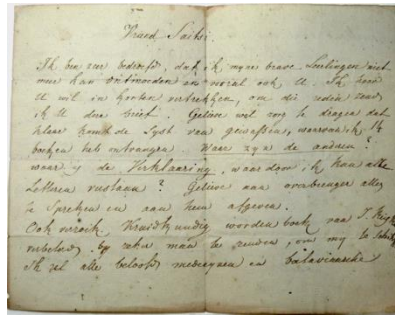 Vriend Saitsi
Ik ben zeer bedroefd, dat ik myne brave Leerlingen niet
meer kan en vooral ook U. Ik hoor
U wil in korten vertrekken, om die reden zend
ik U deze brief. Gelieve wel zorg te dragen dat
komt de Lyst van gewassen, waarvan ik 1/2
boeken heb ontvangen. Waar zyn de andere?
waar is de Verklaaring, waar door ik kan alle
Letteren verstaan? Gelieve aan overbrenger alles
te Spreken en aan hem afgeven.
Ook Kruidkundig woorden boek van
by zeker man te zenden, om my te
Ik zal alle beloofde medicynen en Bataviaasche